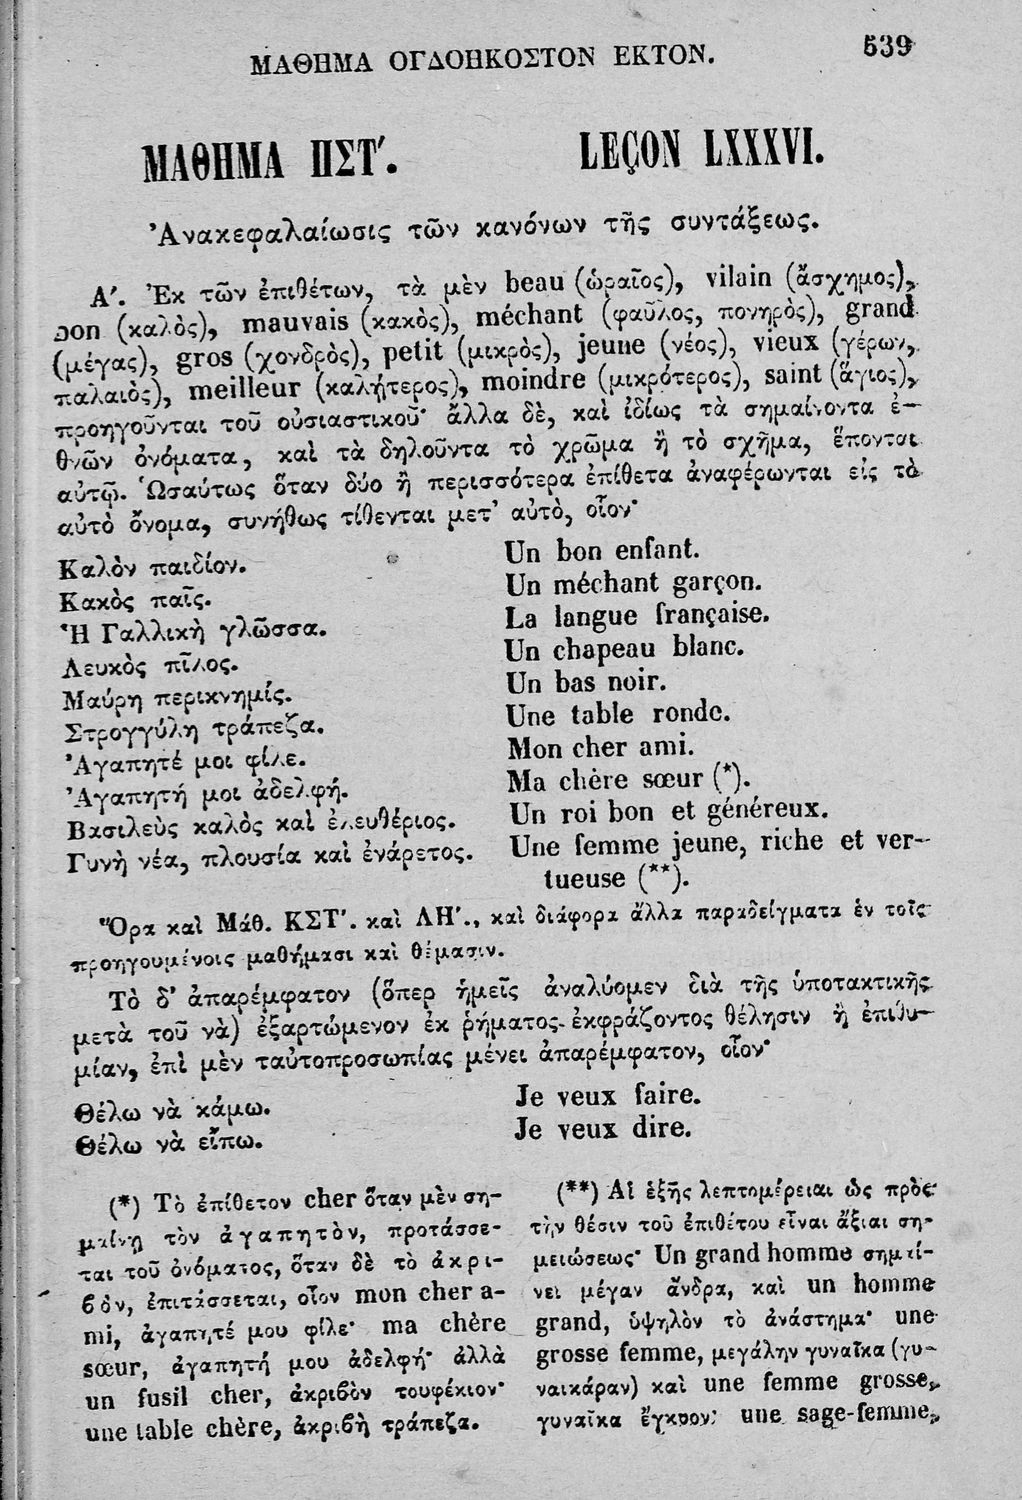 ΜΑΘΗΜΑ ΟΓΔΟΗΚΟΣΤΟΝ ΕΚΤΟΝ.
539
ΜΑΘΗΜΑ ΠΣΤ΄.
LEÇON LXXXVI.
Ἀνακεφαλαίωσις τῶν κανόνων τῆς συντάξεως.
Α΄. Ἐκ τῶν ἐπιθέτων, τὰ μὲν beau (ὡραῖος), vilain (ἄσχημος),
bon (καλὸς), mauvais (κακὸς), méchant (φαῦλος, πονηρὸς), grand
(μέγας), gros (χονδρὸς), petit (μικρὸς), jeune (νέος), vieux (γέρων,
παλαιὸς), meilleur (καλήτερος), moindre (μικρότερος), saint (ἅγιος),
προηγοῦνται τοῦ οὐσιαστικοῦ· ἄλλα δὲ, καὶ ἰδίως τὰ σημαίνοντα ἐ–
θνῶν ὀνόματα, καὶ τὰ δηλοῦντα τὸ χρῶμα ἢ τὸ σχῆμα, ἕπονται
αὐτῷ. Ὡσαύτως ὅταν δύο ἢ περισσότερα ἐπίθετα ἀναφέρωνται εἰς τὸ
αὐτὸ ὄνομα, συνήθως τίθενται μετ' αὐτὸ, οἷον·
Καλὸν παιδίον.
Un bon enfant.
Κακὸς παῖς.
Un méchant garçon.
Ἡ Γαλλικὴ γλῶσσα.
La langue française.
Λευκὸς πῖλος.
Un chapeau blanc.
Μαύρη περικνημίς.
Un bas noir.
Στρογγύλη τράπεζα.
Une table ronde.
Ἀγαπητέ μοι φίλε.
Mon cher ami.
Ἀγαπητή μοι ἀδελφή.
Ma chère sœur (*).
Βασιλεὺς καλὸς καὶ ἐλευθέριος.
Un roi bon et généreux.
Γυνὴ νέα, πλουσία καὶ ἐνάρετος.
Une femme jeune, riche et ver–
tueuse (**).
Ὅρα καὶ Μάθ. ΚΣΤ΄. καὶ ΛΗ΄., καὶ διάφορα ἄλλα παραδείγματα ἐν τοῖς
προηγουμένοις μαθήμασι καὶ θέμασιν.
Τὸ δ' ἀπαρέμφατον (ὅπερ ἡμεῖς ἀναλύομεν διὰ τῆς ὑποτακτικῆς
μετὰ τοῦ νὰ) ἐξαρτώμενον ἐκ ῥήματος ἐκφράζοντος θέλησιν ἢ ἐπιθυ–
μίαν, ἐπὶ μὲν ταὐτοπροσωπίας μένει ἀπαρέμφατον, οἷον·
Θέλω νὰ κάμω.
Je veux faire.
Θέλω νὰ εἴπω.
Je veux dire.
(*) Τὸ ἐπίθετον cher ὅταν μὲν ση–
μαίνῃ τὸν ἀγαπητὸν, προτάσσε–
ται τοῦ ὀνόματος, ὅταν δὲ τὸ ἀκρι–
βὸν, ἐπιτάσσεται, οἷον mon cher a–
mi, ἀγαπητέ μου φίλε· ma chère
sœur, ἀγαπητή μου ἀδελφή· ἀλλὰ
un fusil cher, ἀκριβὸν τουφέκιον·
une table chère, ἀκριβὴ τράπεζα.
(**) Αἱ ἑξῆς λεπτομέρειαι ὡς πρὸς
τὴν θέσιν τοῦ ἐπιθέτου εἶναι ἄξιαι ση–
μειώσεως· Un grand homme σημαί–
νει μέγαν ἄνδρα, καὶ un homme
grand, ὑψηλὸν τὸ ἀνάστημα· une
grosse femme, μεγάλην γυναῖκα (γυ–
ναικάραν) καὶ une femme grosse,
γυναῖκα ἔγκυον· une sage-femme,